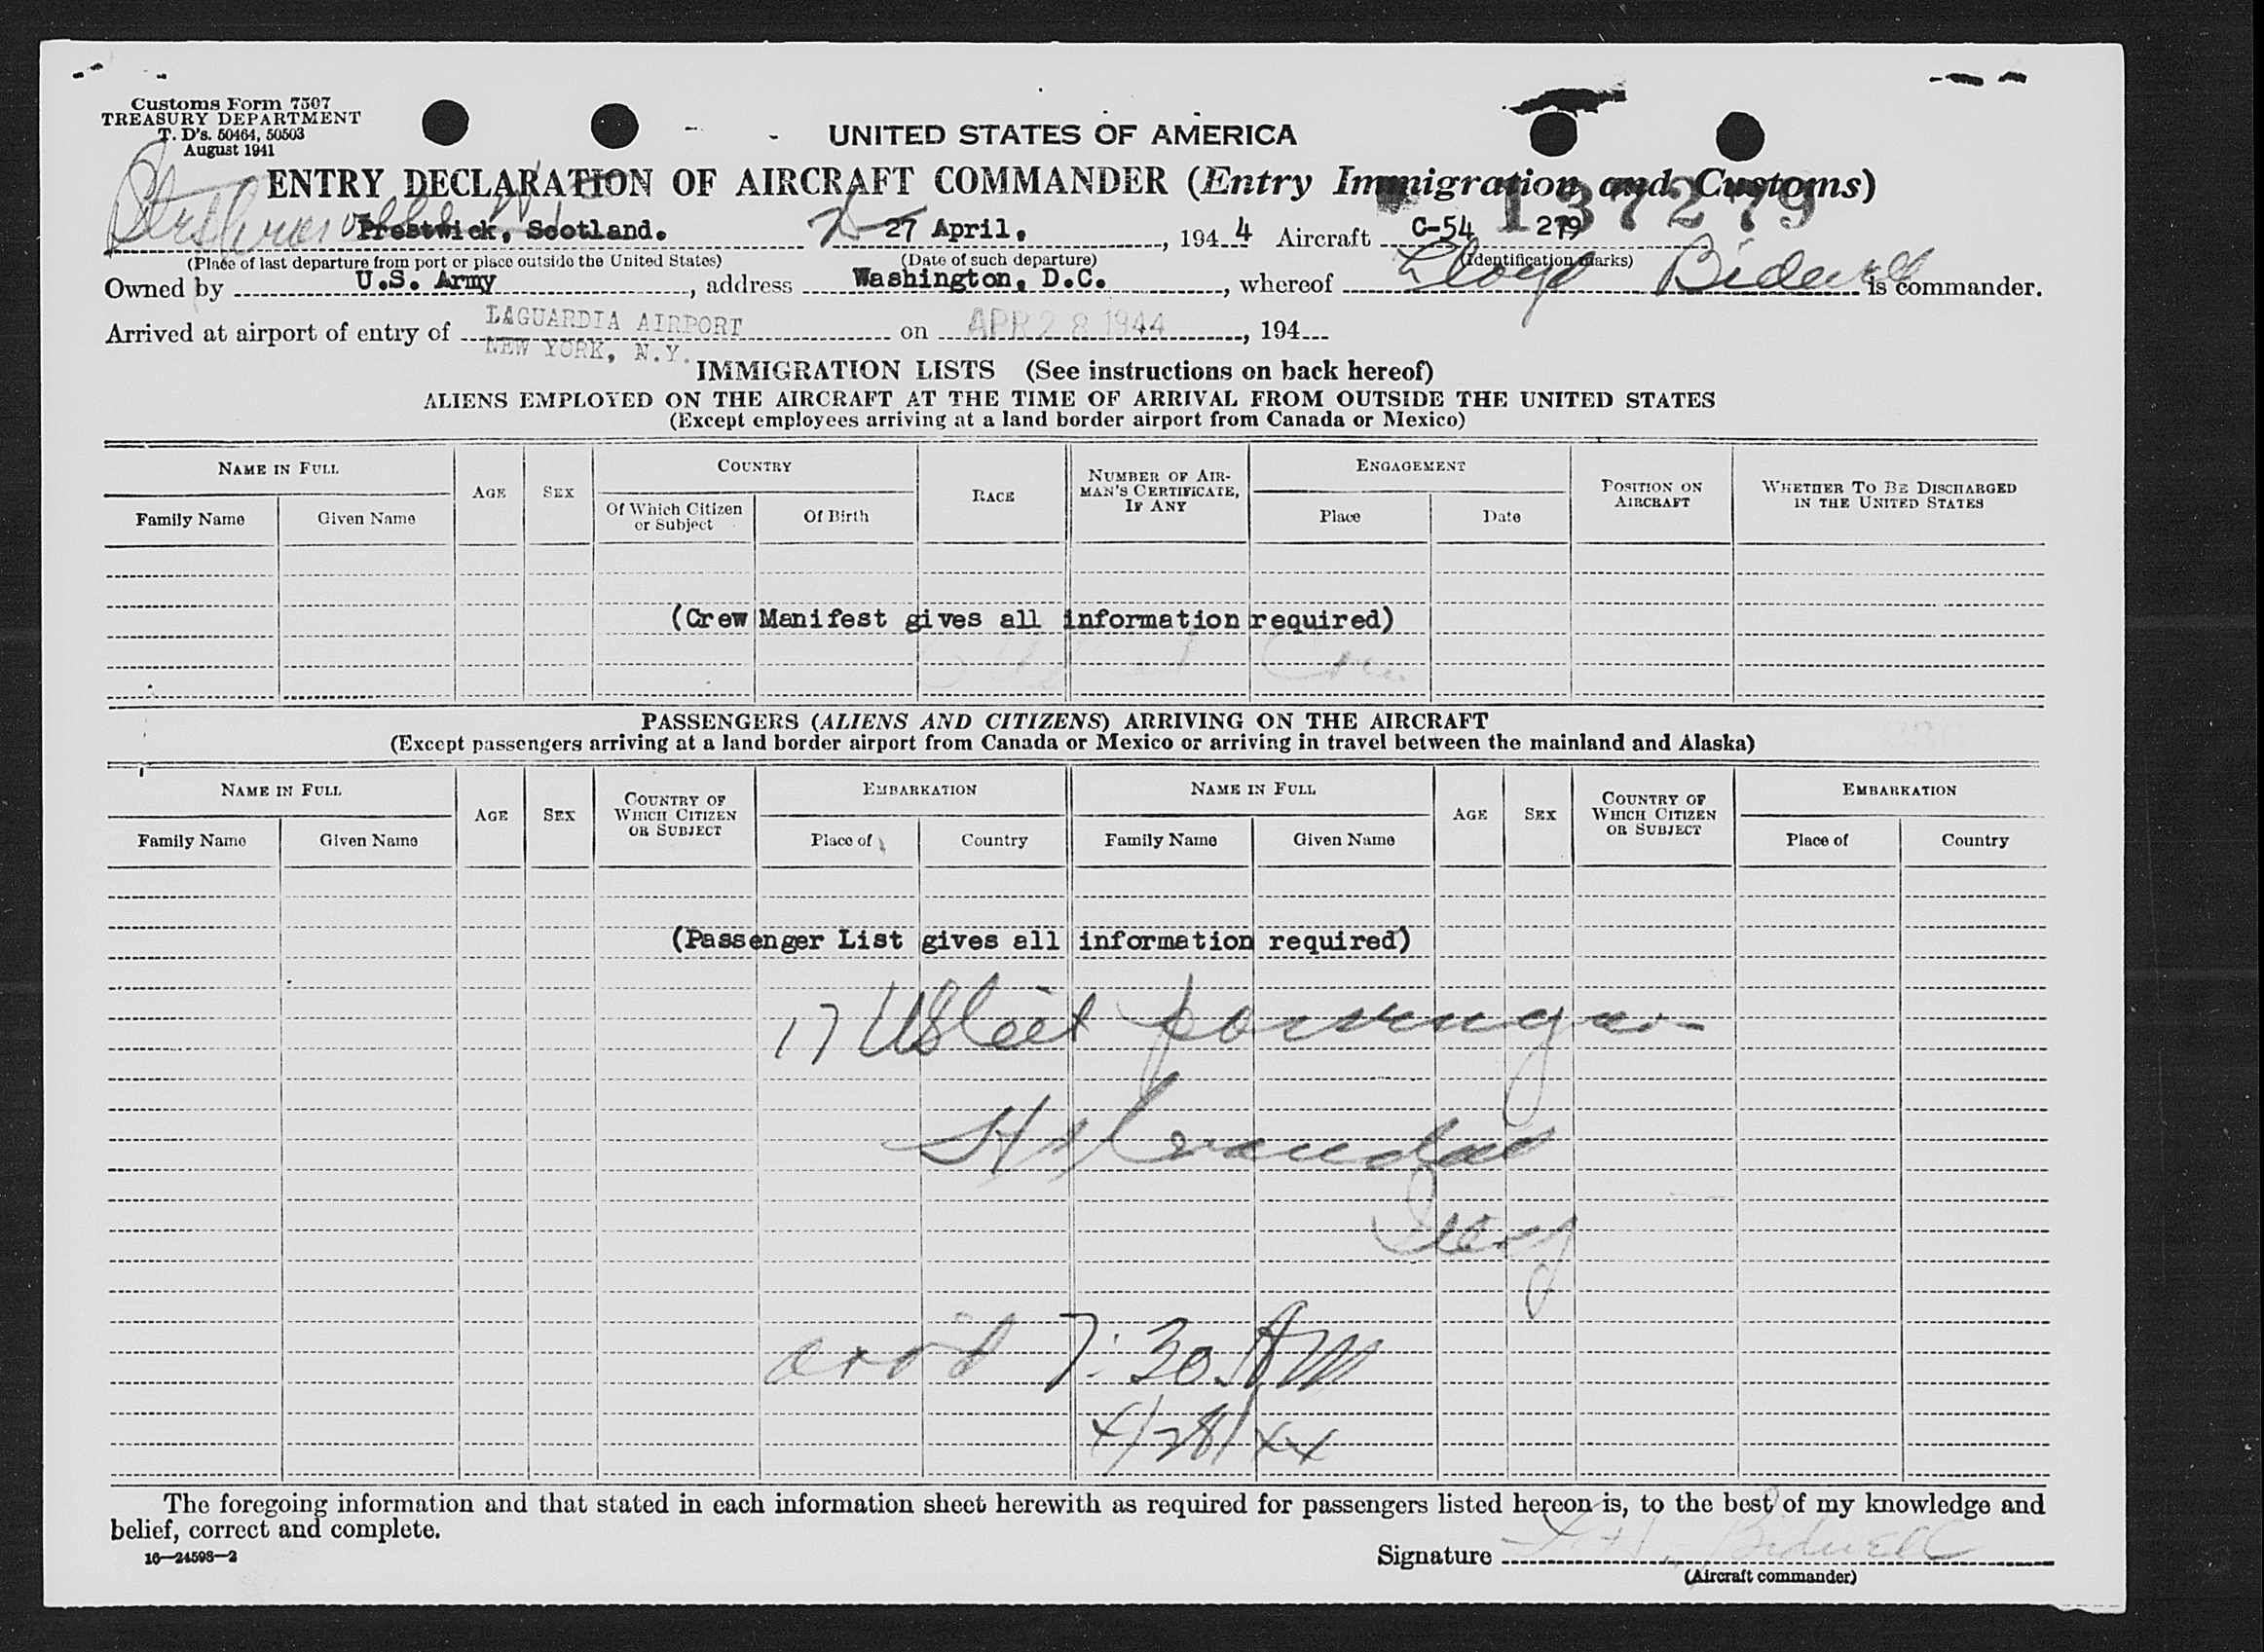 Customs Form 7507
TREASURY DEPARTMENT
T. D's. 50464, 50503
August 1941
UNITED STATES OF AMERICA
ENTRY DECLARATION OF AIRCRAFT COMMANDER (Entry Immigration and Customs)
137279
Prestwick, Scotland. 27 April, 1944 Aircraft C-54 279
(Place of last departure from port or place outside the United States) (Date of such departure) (Identification marks)
Owned by U.S. Army, address Washington, D.C., whereof Lloyd Bidwell is commander.
Arrived at airport of entry of LAGUARDIA AIRPORT on APR 28 1944, 194
NEW YORK, N.Y.
IMMIGRATION LISTS (See instructions on back hereof)
ALIENS EMPLOYED ON THE AIRCRAFT AT THE TIME OF ARRIVAL FROM OUTSIDE THE UNITED STATES
(Except employees arriving at a land border airport from Canada or Mexico)
NAME IN FULL AGE SEX COUNTRY RACE NUMBER OF AIRMAN'S CERTIFICATE, IF ANY ENGAGEMENT POSITION ON AIRCRAFT WHETHER TO BE DISCHARGED IN THE UNITED STATES
Family Name Given Name Of Which Citizen or Subject Of Birth Place Date
(Crew Manifest gives all information required)
PASSENGERS (ALIENS AND CITIZENS) ARRIVING ON THE AIRCRAFT
(Except passengers arriving at a land border airport from Canada or Mexico or arriving in travel between the mainland and Alaska)
NAME IN FULL AGE SEX COUNTRY OF WHICH CITIZEN OR SUBJECT EMBARKATION NAME IN FULL AGE SEX COUNTRY OF WHICH CITIZEN OR SUBJECT EMBARKATION
Family Name Given Name Place of Country Family Name Given Name Place of Country
(Passenger List gives all information required)
17 US Cit passengers
arr'd 7:30 AM
4/28/44
The foregoing information and that stated in each information sheet herewith as required for passengers listed hereon is, to the best of my knowledge and
belief, correct and complete.
16—24598-2
Signature Bidwell
(Aircraft commander)